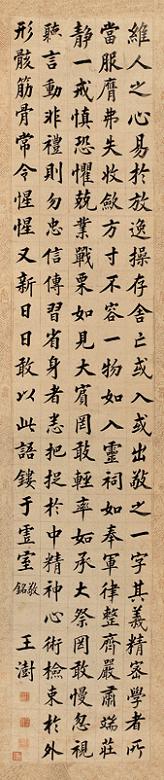 維人之心易於放逸操存舍亡或入或出敬之一字其義精密學者所
當服膺弗失收斂方寸不容一物如入靈祠如奉軍律整齊嚴肅端莊
静一戒慎恐懼兢業戰栗如見大賓罔敢輕率如承大祭罔敢慢忽視
聽言動非禮則勿忠信傳習省身者悉把捉於中精神心術檢束於外
形骸筋骨常令惺惺又新日日敢以此語鏤于虛室
敬銘
王澍